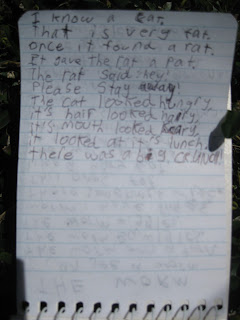 I know a cat.
That is very fat.
Once it found a rat.
It gave the rat a pat.
The rat said hey!
Please stay away!
The cat looked hungry,
it's hair looked hairy,
It's mouth looked
it looked at it's lunch.
there was a big CRUNCH!
THE WORM